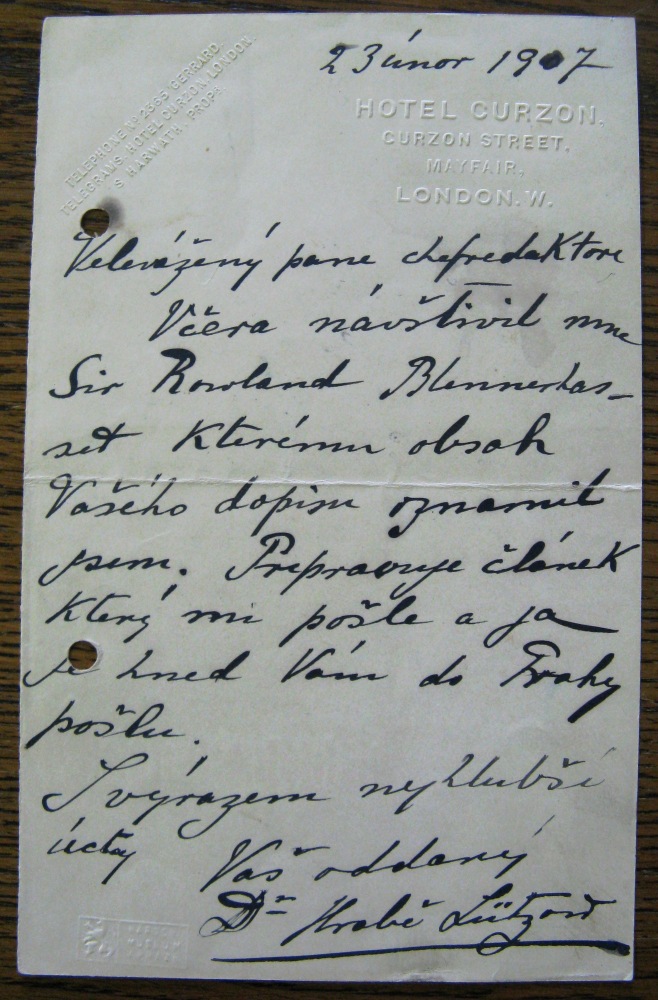 TELEPHONE Nº 2365 GERRARD
TELEGRAMS. HOTEL CURZON, LONDON.
S HARWATH. PROPR
23 únor 1907
HOTEL CURZON.
CURZON STREET,
MAYFAIR,
LONDON. W.
Velevážený pane chefredaktore
Včera návštivil mne
Sir Rowland Blennerhas-
set kterému obsah
Vašého dopisu oznamil
jsem. Pripravuje článek
který mi pošle a ja
je hned Vám do Prahy
pošlu.
S výrazem nejhlubší
úcty
Vaš oddaný
Dr Hrabě Lützow